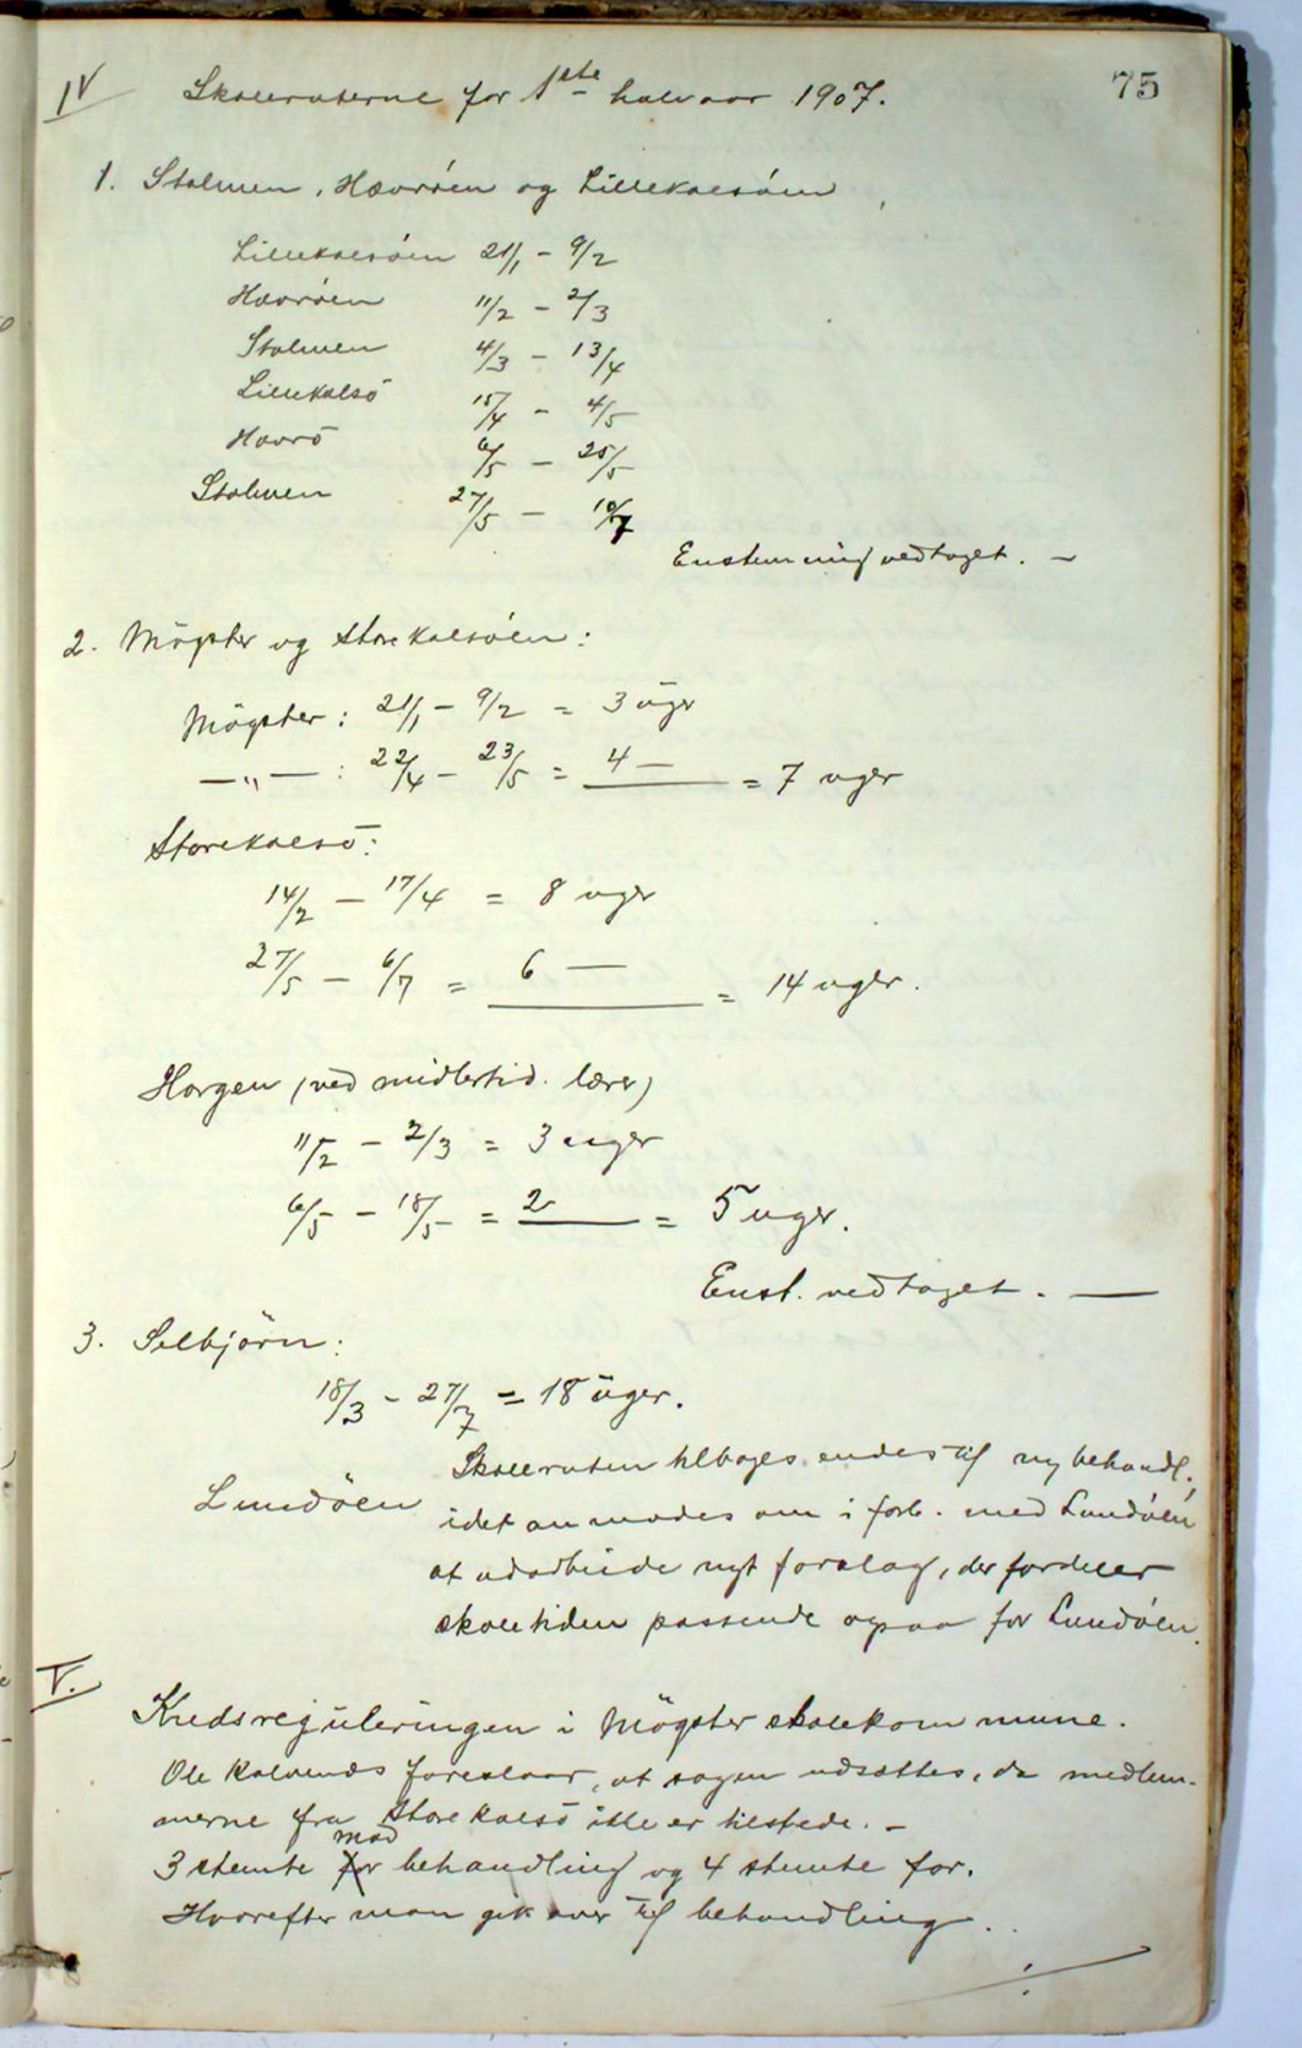 75
IV Skoleruterne for 1ste halvaar 1907.
1. Stolmen, Havröen og Lillekalsöen
Lillekalsöen 21/1 - 9/2
Havröen 11/2 - 2/3
Stolmen 4/3 - 13/4
Lillekalsö 15/4 - 4/5
Havrö 6/5 - 25/5
Stolmen 27/5 - 10/7
Enstemmig vedtaget. -
2. Mögster og Storekalsöen:
Mögster: 21/1 - 9/2 = 3 uger
—"— : 22/4 - 23/5 = 4 — = 7 uger
Storekalsö:
14/2 - 17/4 = 8 uger
27/5 - 6/7 = 6 — = 14 uger.
Horgen (ved midlertid. lærer)
11/2 - 2/3 = 3 uger
6/5 - 18/5 = 2 = 5 uger.
Enst. vedtaget. —
3. Selbjörn:
18/3 - 27/7 = 18 uger.
Skoleruten tilbagesendes til ny behandl.,
Lundöen idet anmodes om i forb. med Lundöen
at udarbeide nyt forslag, der fordeler
skoletiden passende ogsaa for Lundöen.
V.
Kredsreguleringen i Mögster skolekommune.
Ole Kalvenæs foreslaar, at sagen udsættes, da medlem-
merne fra Storekalsö ikke er tilstede. -
3 stemte for mod behandling og 4 stemte for.
Hvorefter man gik over til behandling.